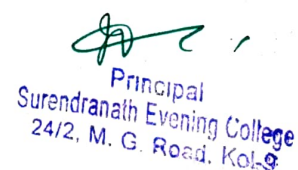 Principal
Surendranath Evening College
24/2, M. G. Road, Kol-9